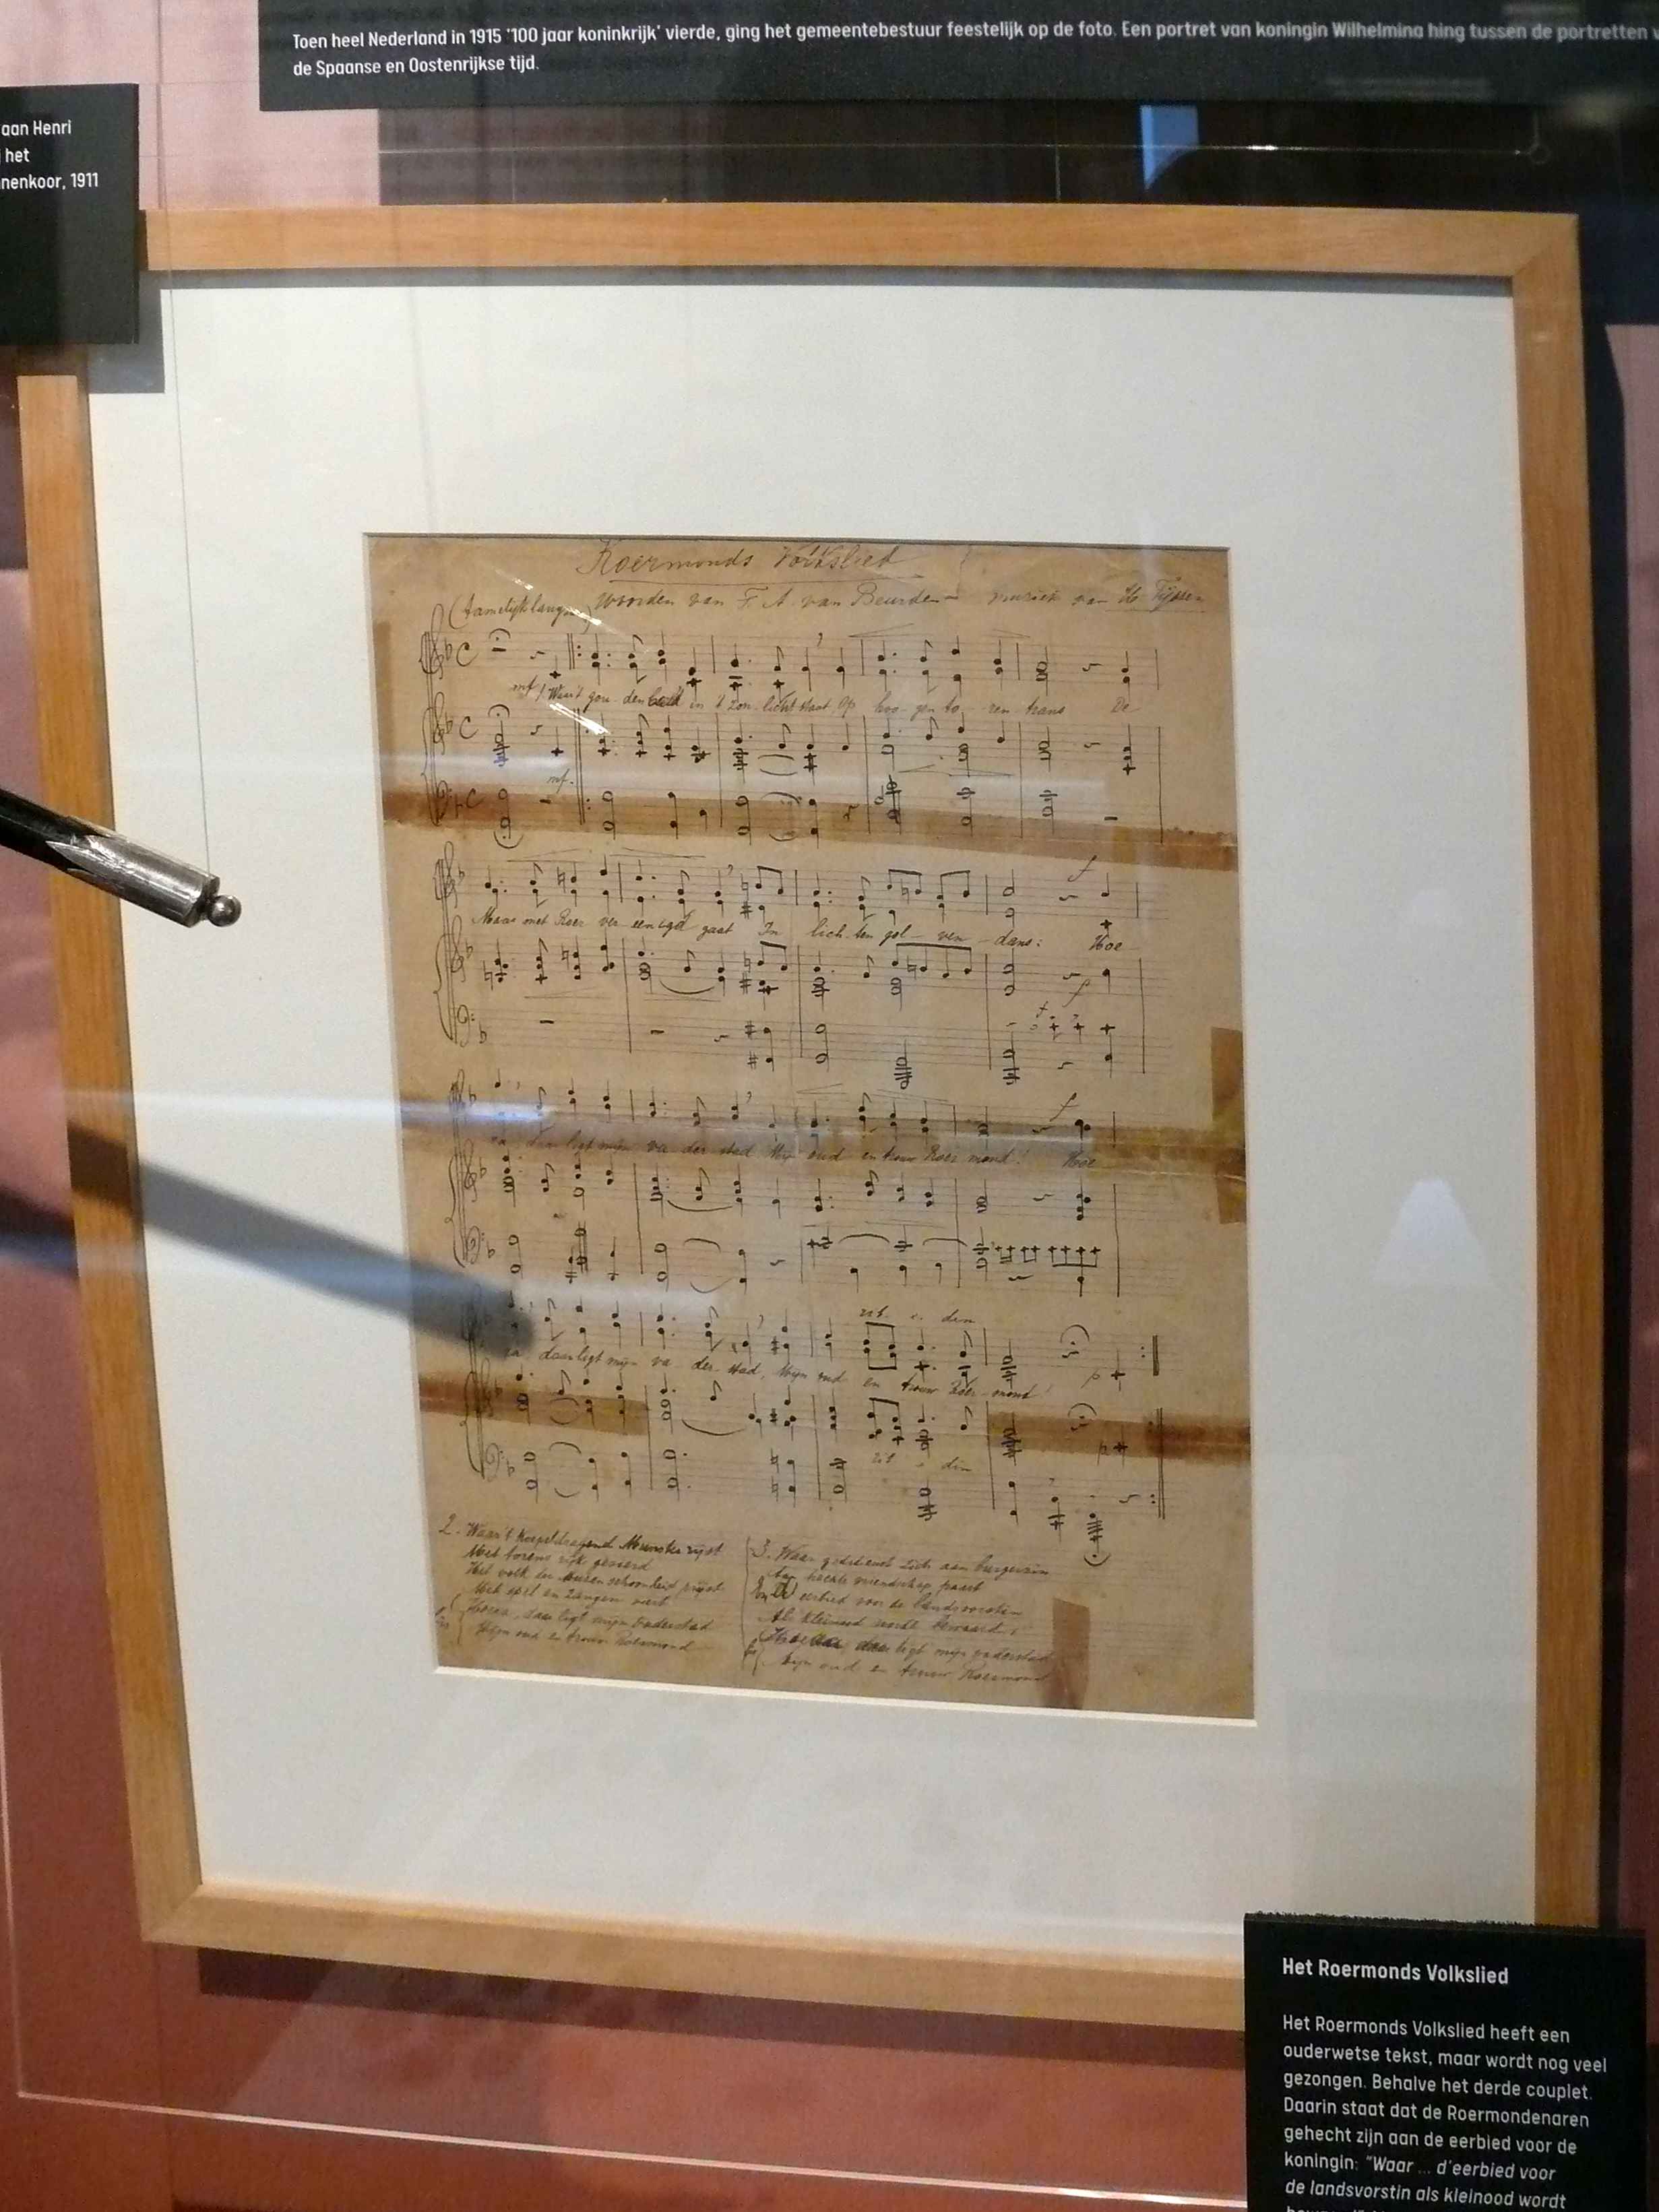 Toen heel Nederland in 1915 '100 jaar koninkrijk' vierde, ging het gemeentebestuur feestelijk op de foto. Een portret van koningin Wilhelmina hing tussen de portretten
de Spaanse en Oostenrijkse tijd.
aan Henri
het
nenkoor, 1911
Roermonds Volkslied
(Tamelijk langzaam) woorden van F. A. van Beurden muziek van H. Tijssen
mf Waar't gou-den beeld in 't Zon-licht staat Op hoo-gen to-ren trans De
mf.
f
Maas met Roer ver-eenigd gaat In lich-ten gol-ven-dans: Hoe-
f
f
ra, daar ligt mijn va der stad Mijn oud en trouw Roer mond! Hoe
rit. e. dim
ra, daar ligt mijn va-der-stad, Mijn oud en trouw Roer-mond! p
p
rit e dim
2. Waar't Koepeldragend Munster rijst
Met torens rijk gesierd
Het volk der Muzen schoonheid prijst
Met spel en zangen viert
bis Hoera, daar ligt mijn vaderstad
Mijn oud en trouw Roermond
3. Waar godsdienst zich aan burgerzin
Aan hechte vriendschap paart
eerbied voor de landsvorstin
Als kleinood wordt bewaard:
Hoera daar ligt mijn vaderstad
Mijn oud en trouw Roermond
Het Roermonds Volkslied
Het Roermonds Volkslied heeft een
ouderwetse tekst, maar wordt nog veel
gezongen. Behalve het derde couplet.
Daarin staat dat de Roermondenaren
gehecht zijn aan de eerbied voor de
koningin: "Waar ... d'eerbied voor
de landsvorstin als kleinood wordt